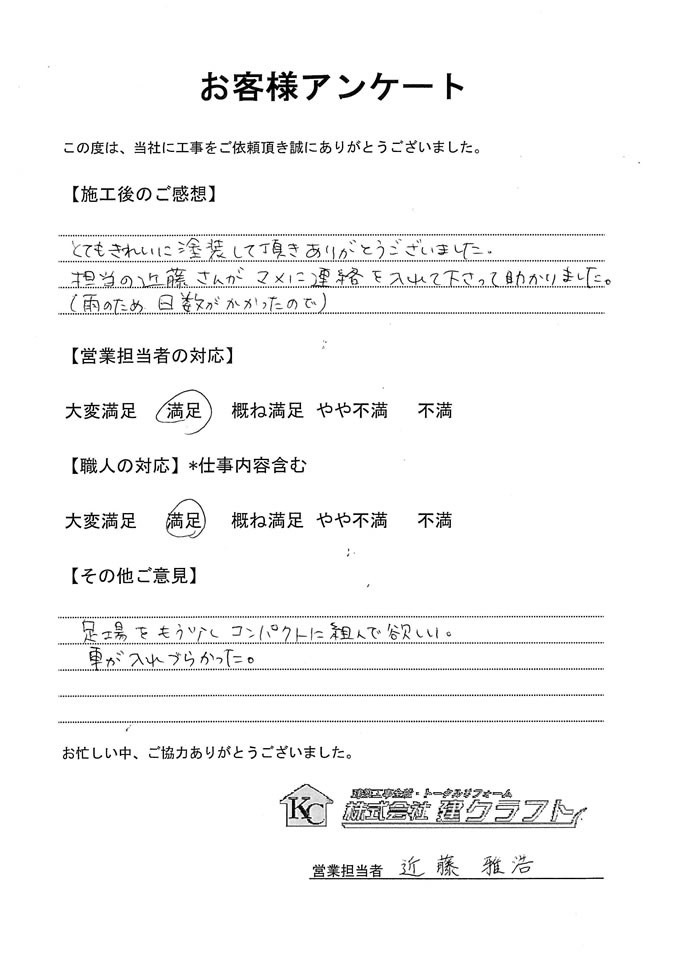 お客様アンケート
この度は、当社に工事をご依頼頂き誠にありがとうございました。
【施工後のご感想】
とてもきれいに塗装して頂きありがとうございました。
担当の近藤さんがマメに連絡を入れて下さって助かりました。
(雨のため日数がかかったので)
【営業担当者の対応】
大変満足 満足 概ね満足 やや不満 不満
【職人の対応】*仕事内容含む
大変満足 満足 概ね満足 やや不満 不満
【その他ご意見】
足場をもう少しコンパクトに組んで欲しい。
車が入れづらかった。
お忙しい中、ご協力ありがとうございました。
建築工事全般・トータルリフォーム
KC 株式会社 建クラフト
営業担当者 近藤 雅浩